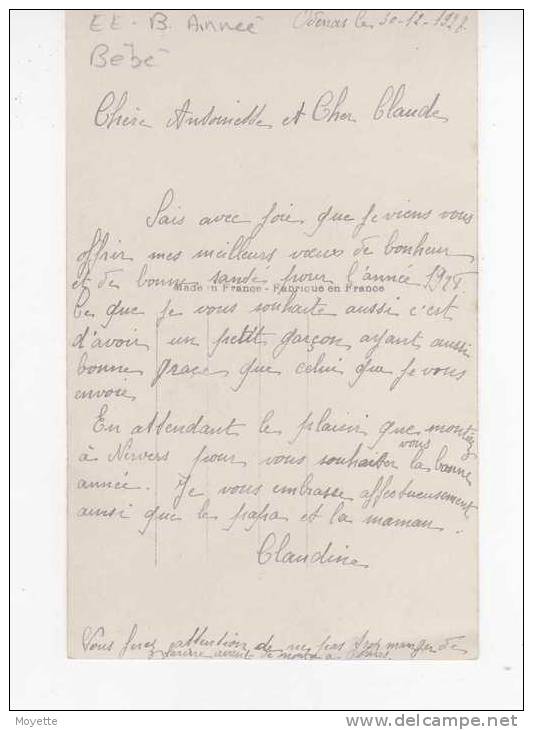 EE - B. Année
Bébé
Odenas le 30-12-1927.
Chère Antoinette et Cher Claude
Sais avec joie que je viens vous
offrir mes meilleurs vœux de bonheur
et de bonne santé pour l'année 1928.
Made in France - Fabriqué en France
Ce que je vous souhaite aussi c'est
d'avoir un petit garçon ayant aussi
bonne grace que celui que je vous
envoie
En attendant le plaisir que montiez
vous
à Nervers pour vous souhaiter la bonne
année. Je vous embrasse affectueusement
ainsi que le papa et la maman.
Claudine
Vous ferez attention de ne pas trop manger de
avant de
Moyette
www.delcampe.net